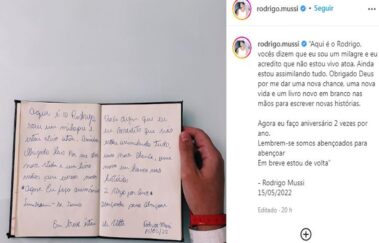 Aqui é o Rodrigo
sou um milagre e
Obrigado Deus
nova vida e um livro
Agora eu faço aniversário
Lembrem-se somos
Em breve estou
que eu
acredito que não
assimilando tudo
uma nova chance, uma
novo em branco nas
histórias
2 vezes por ano
abençoados para abençoar
de volta
Rodrigo Mussi
15/05/22
rodrigo.mussi • Seguir
rodrigo.mussi "Aqui é o Rodrigo,
vocês dizem que eu sou um milagre e eu
acredito que não estou vivo atoa. Ainda
estou assimilando tudo. Obrigado Deus
por me dar uma nova chance, uma nova
vida e um livro novo em branco nas
mãos para escrever novas histórias.
Agora eu faço aniversário 2 vezes por
ano.
Lembrem-se somos abençoados para
abençoar
Em breve estou de volta"
- Rodrigo Mussi
15/05/2022
Editado · 20 h